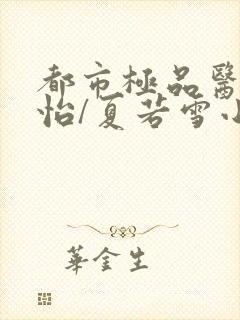 都市極品醫
怡/夏若雪小
華金生